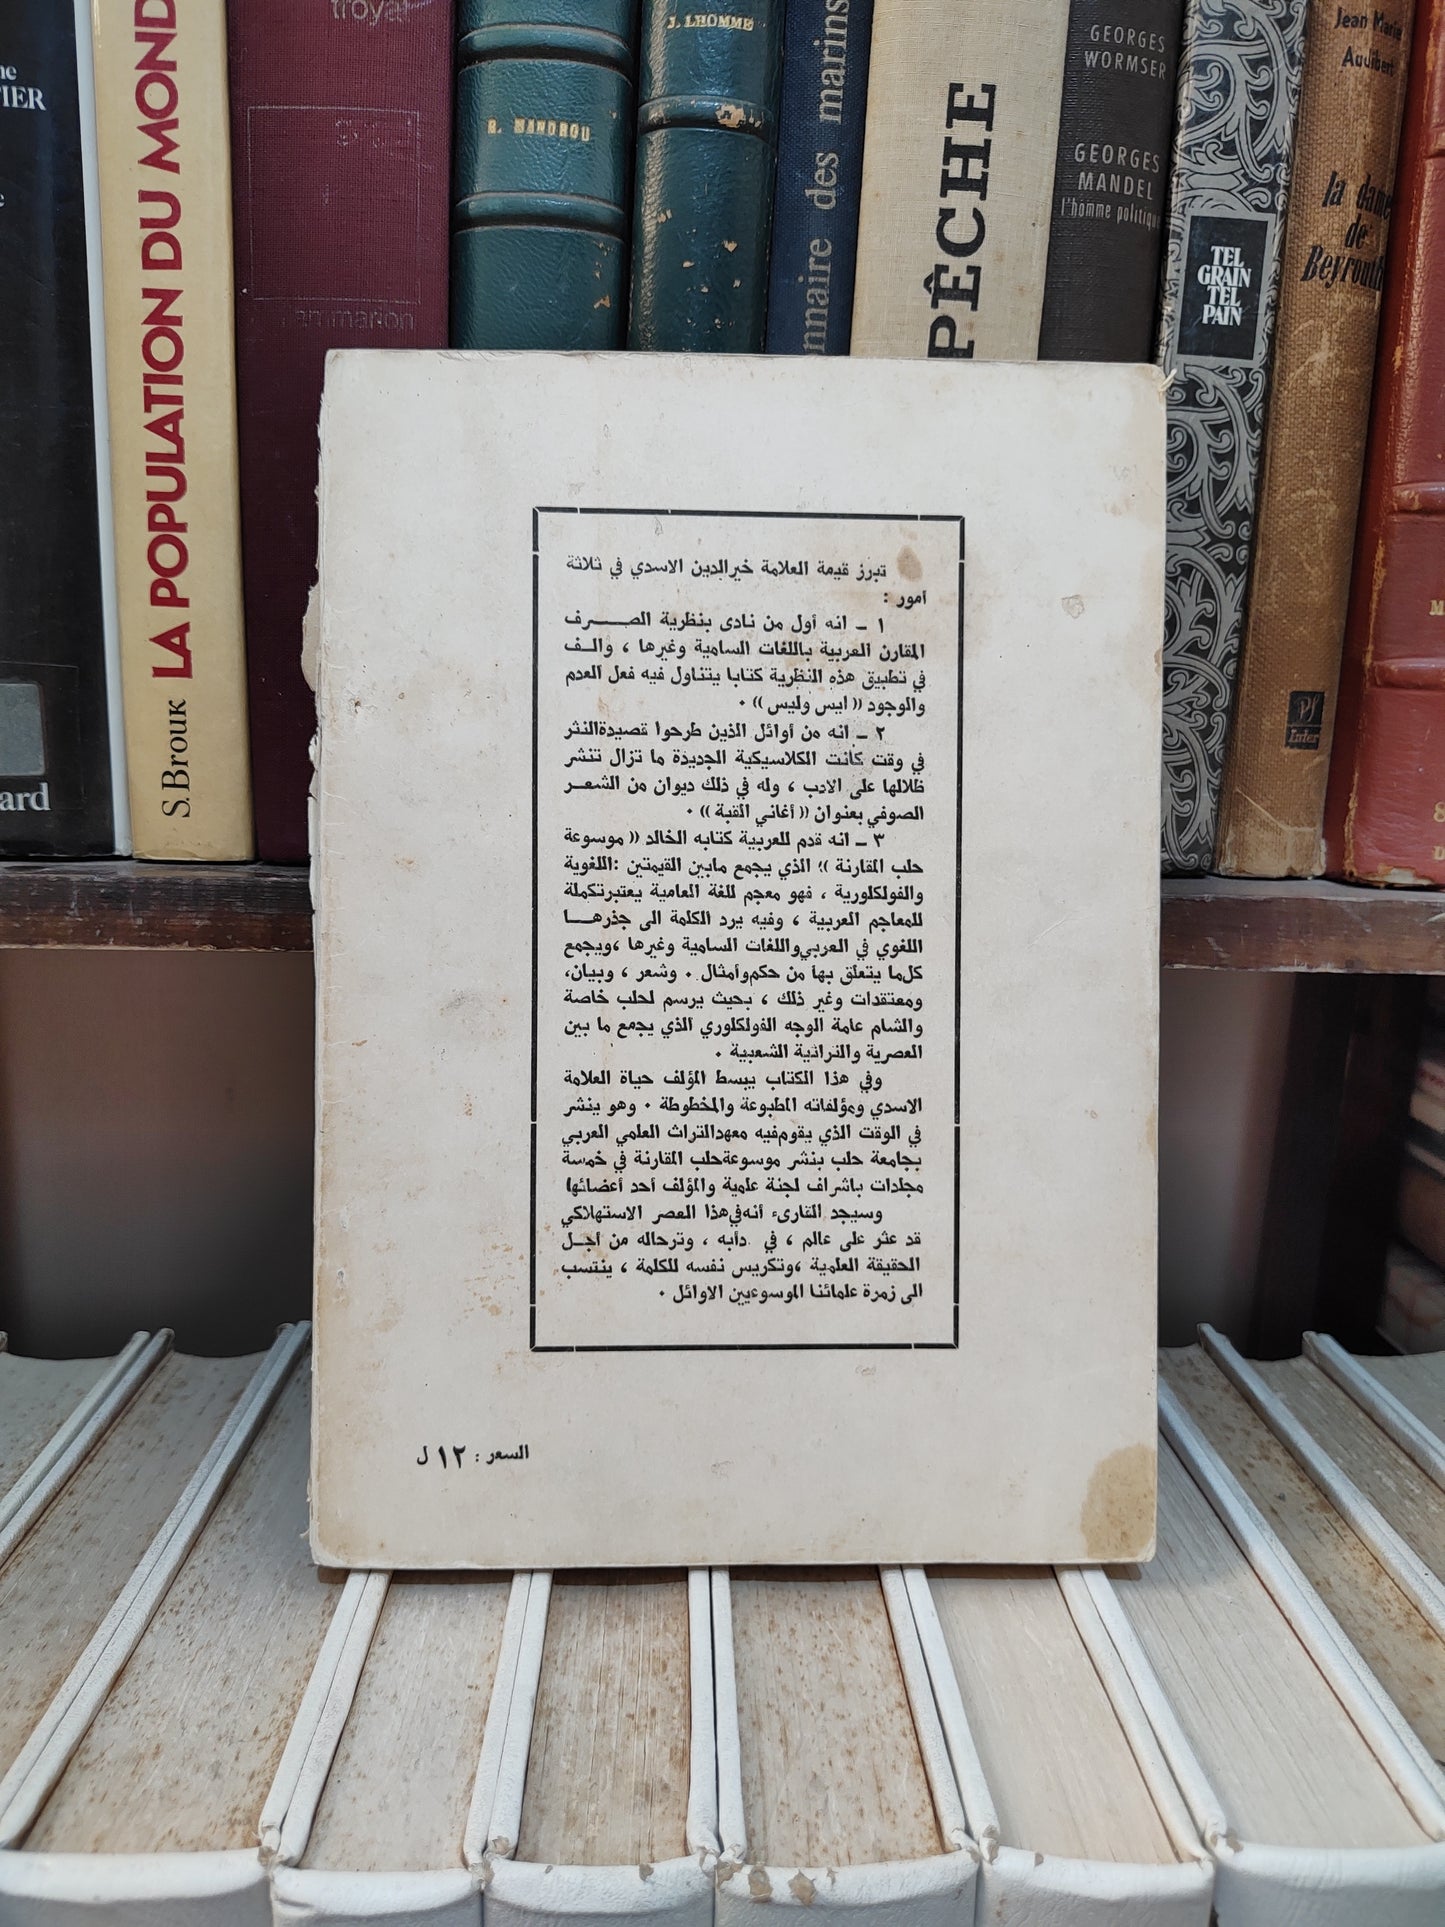 troyat
J. LHOMME
R. MANDROU
flammarion
LA POPULATION DU MOND
S. Brouk
TIER
ard
nnaire des marins
PÊCHE
GEORGES
WORMSER
GEORGES
MANDEL
l'homme politique
TEL
GRAIN
TEL
PAIN
Jean Marie
Audibert
la dame
de
Beyrouth
Inter
تبرز قيمة العلامة خيرالدين الاسدي في ثلاثة
امور :
١ ـ انه أول من نادى بنظرية الصرف
المقارن العربية باللغات السامية وغيرها ، والف
في تطبيق هذه النظرية كتابا يتناول فيه فعل العدم
والوجود (( ايس وليس )) ٠
٢ ـ انه من أوائل الذين طرحوا قصيدةالنثر
في وقت كانت الكلاسيكية الجديدة ما تزال تنشر
ظلالها على الادب ، وله في ذلك ديوان من الشعر
الصوفي بعنوان (( أغاني القبة )) ٠
٣ ـ انه قدم للعربية كتابه الخالد (( موسوعة
حلب المقارنة )) الذي يجمع مابين القيمتين :اللغوية
والفولكلورية ، فهو معجم للغة العامية يعتبرتكملة
للمعاجم العربية ، وفيه يرد الكلمة الى جذرها
اللغوي في العربي واللغات السامية وغيرها ،ويجمع
كل ما يتعلق بها من حكم وأمثال ٠ وشعر ، وبيان،
ومعتقدات وغير ذلك ، بحيث يرسم لحلب خاصة
والشام عامة الوجه الفولكلوري الذي يجمع ما بين
العصرية والتراثية الشعبية ٠
وفي هذا الكتاب يبسط المؤلف حياة العلامة
الاسدي ومؤلفاته المطبوعة والمخطوطة ٠ وهو ينشر
في الوقت الذي يقوم فيه معهدالتراث العلمي العربي
بجامعة حلب بنشر موسوعةحلب المقارنة في خمسة
مجلدات باشراف لجنة علمية والمؤلف أحد أعضائها
وسيجد القارىء أنه في هذا العصر الاستهلاكي
قد عثر على عالم ، في دأبه ، وترحاله من أجل
الحقيقة العلمية ،وتكريس نفسه للكلمة ، ينتسب
الى زمرة علمائنا الموسوعيين الاوائل ٠
السعر : ١٢ ل